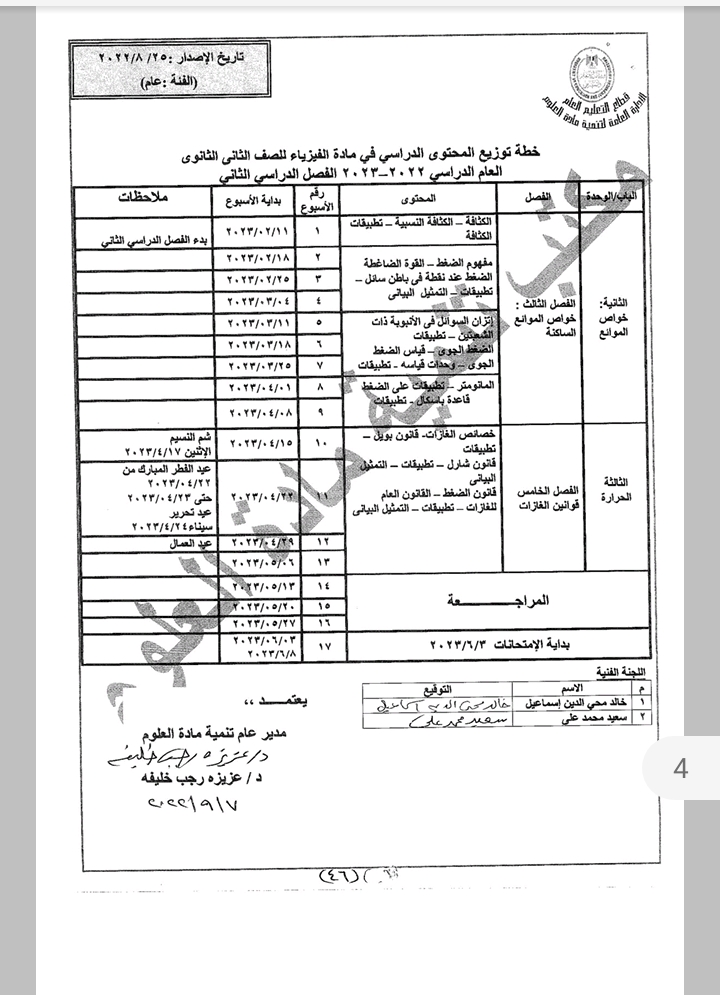 تاريخ الإصدار :٢٥/ ٢٠٢٢/٨
(الفئة :عام)
قطاع التعليم العام
الإدارة العامة لتنمية مادة العلوم
خطة توزيع المحتوى الدراسي في مادة الفيزياء للصف الثانى الثانوى
العام الدراسي ٢٠٢٢-٢٠٢٣ الفصل الدراسي الثاني
الباب/الوحدة الفصل المحتوى رقم الأسبوع بداية الأسبوع ملاحظات
الثانية:
خواص
الموائع
الفصل الثالث :
خواص الموائع
الساكنة
الكثافة – الكثافة النسبية – تطبيقات
الكثافة
١ ٢٠٢٣/٠٢/١١ بدء الفصل الدراسي الثاني
مفهوم الضغط – القوة الضاغطة
الضغط عند نقطة فى باطن سائل –
تطبيقات – التمثيل البيانى
٢ ٢٠٢٣/٠٢/١٨
٣ ٢٠٢٣/٠٢/٢٥
٤ ٢٠٢٣/٠٣/٠٤
إتزان السوائل فى الأنبوبة ذات
الشعبتين – تطبيقات
الضغط الجوى – قياس الضغط
الجوى – وحدات قياسه - تطبيقات
٥ ٢٠٢٣/٠٣/١١
٦ ٢٠٢٣/٠٣/١٨
٧ ٢٠٢٣/٠٣/٢٥
المانومتر – تطبيقات على الضغط
قاعدة باسكال - تطبيقات
٨ ٢٠٢٣/٠٤/٠١
٩ ٢٠٢٣/٠٤/٠٨
الثالثة
الحرارة
الفصل الخامس
قوانين الغازات
خصائص الغازات- قانون بويل –
تطبيقات
قانون شارل – تطبيقات – التمثيل
البيانى
قانون الضغط – القانون العام
للغازات – تطبيقات – التمثيل البيانى
١٠ ٢٠٢٣/٠٤/١٥
شم النسيم
الإثنين ٢٠٢٣/٤/١٧
١١ ٢٠٢٣/٠٤/٢٢
عيد الفطر المبارك من
٢٠٢٣/٠٤/٢٢
حتى ٢٠٢٣/٠٤/٢٣
عيد تحرير
سيناء٢٠٢٣/٤/٢٤
١٢ ٢٠٢٣/٠٤/٢٩ عيد العمال
١٣ ٢٠٢٣/٠٥/٠٦
المراجــعة
١٤ ٢٠٢٣/٠٥/١٣
١٥ ٢٠٢٣/٠٥/٢٠
١٦ ٢٠٢٣/٠٥/٢٧
بداية الإمتحانات ٢٠٢٣/٦/٣
١٧ ٢٠٢٣/٠٦/٠٣
٢٠٢٣/٦/٨
مكتب تنمية مادة العلوم
اللجنة الفنية
م الاسم التوقيع
١ خالد محي الدين إسماعيل خالد محى الدين اسماعيل
٢ سعيد محمد على سعيد محمد على
يعتمــد ،،
مدير عام تنمية مادة العلوم
د/عزيزه رجب خليفه
د / عزيزه رجب خليفه
٢٠٢٢/٩/٧
(٤٦)
4